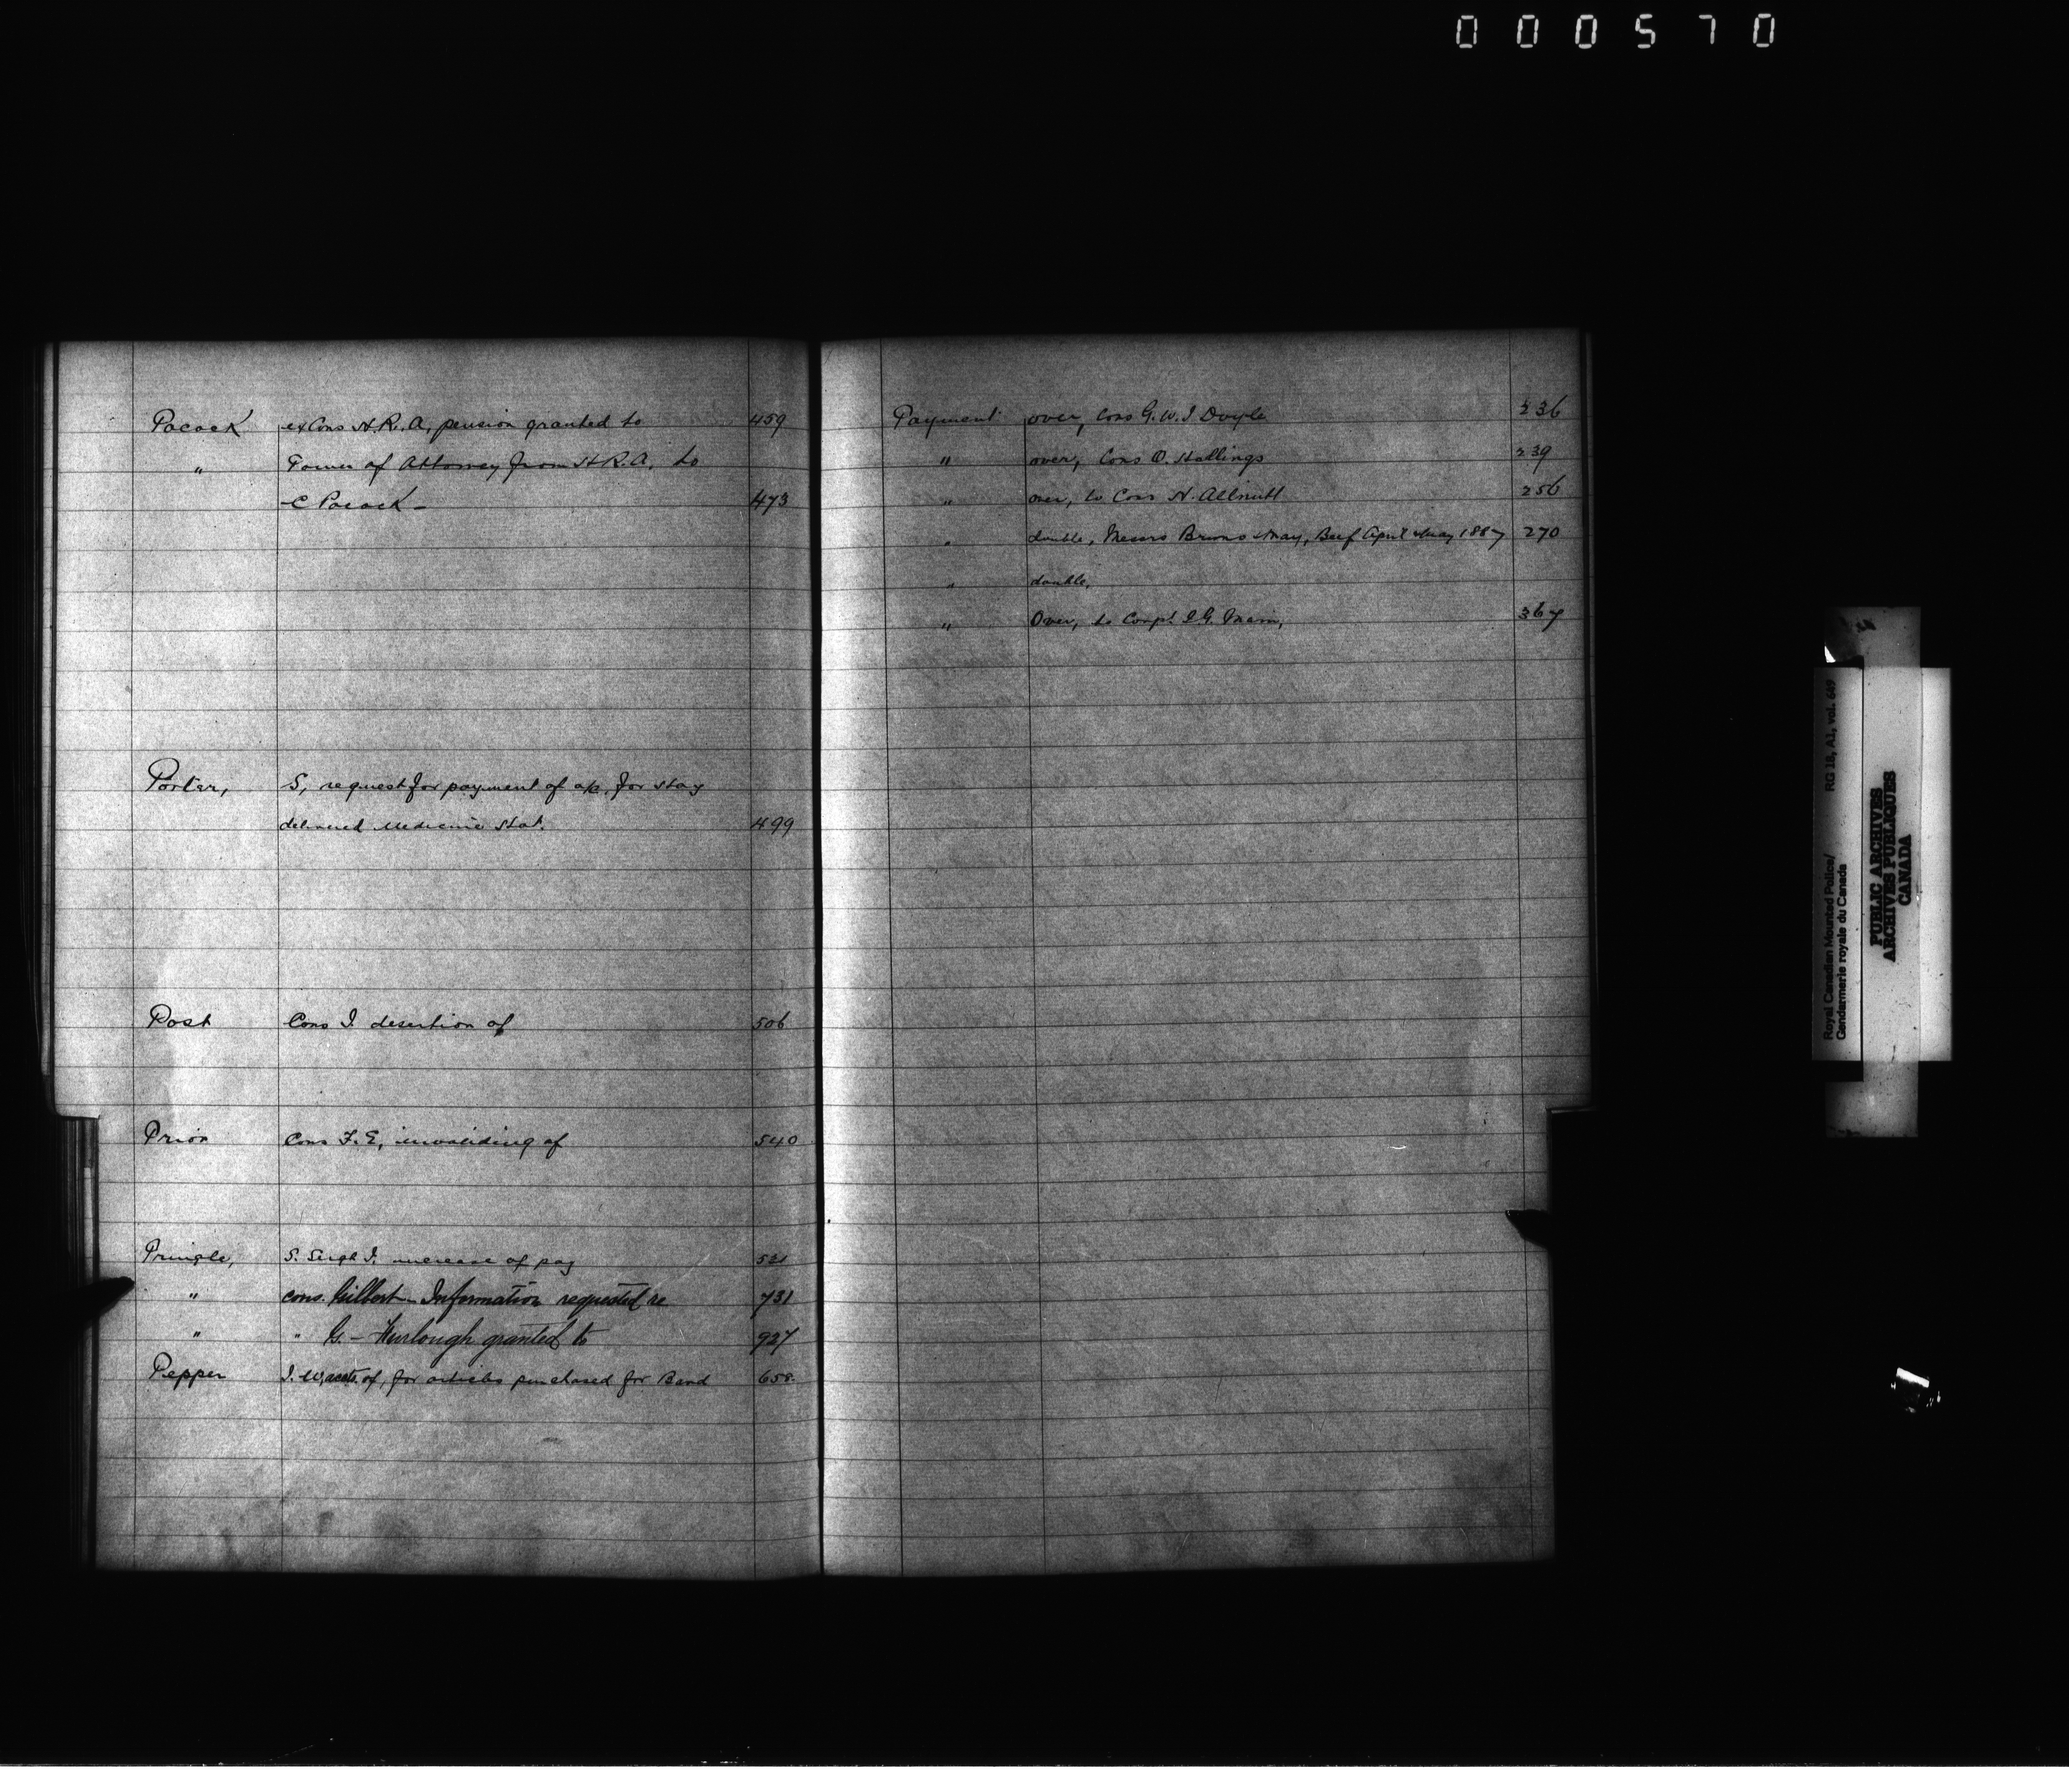 000570
Pocock ex Cons H.R.A, pension granted to 459
" Power of Attorney from H.R.A. to
C Pocock - 473
Porter, S, request for payment of a/c, for Hay
delivered Medicine Hat. 499
Post Cons J. desertion of 506
Prior Cons F.E, invaliding of 540
Pringle, S. Sergt J. increase of pay 531
" Cons. Gilbert - Information requested re 731
" " G. - Furlough granted to 927
Pepper J. W, accts. of, for articles purchased for Band 658.
Payment over, Cons G.W.J Doyle 236
" over, Cons O. Stallings 239
" over, to Cons H. Allnutt 256
" double, Messrs May, Beef April & May 1887 270
" double,
" Over, to Corpl. 367
RG 18, A1, vol. 649
Royal Canadian Mounted Police/
Gendarmerie royale du Canada
PUBLIC ARCHIVES
ARCHIVES PUBLIQUES
CANADA